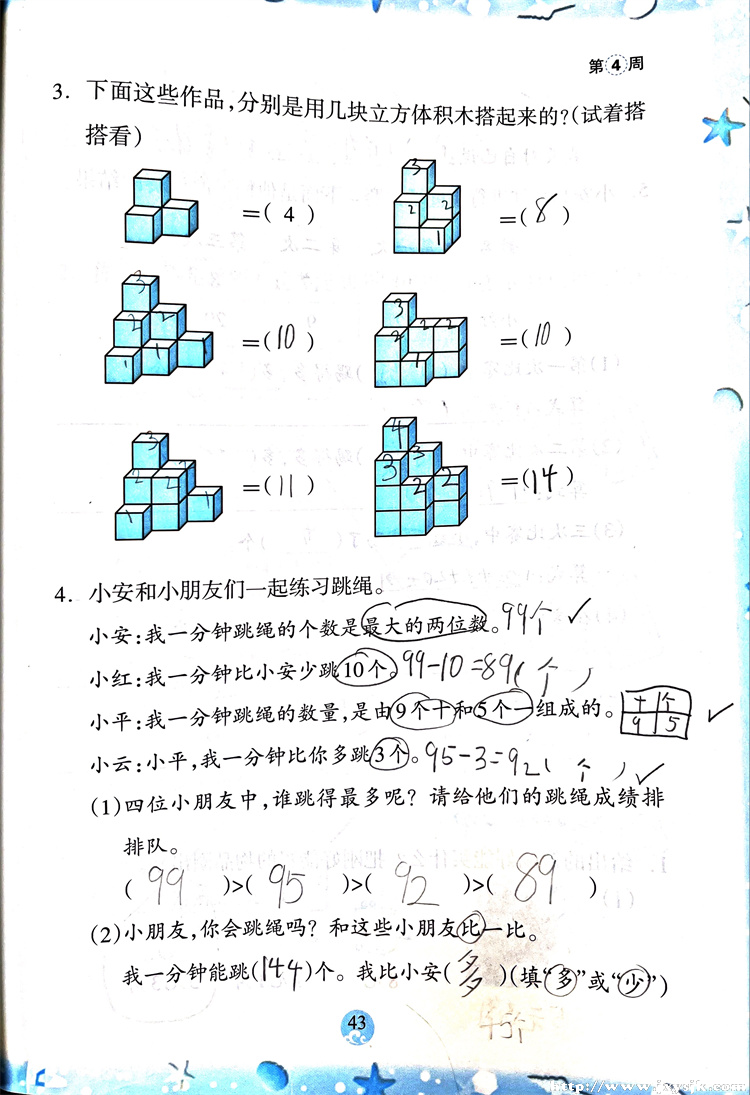 第4周
3. 下面这些作品,分别是用几块立方体积木搭起来的?(试着搭
搭看)
=( 4 )
3
2 2
1
=( 8 )
3
2 2
1 1 1
=( 10 )
3
2 2 2
1
=( 10 )
3
2 2
1 1
=( 11 )
4
3 3
2 2
=( 14 )
4. 小安和小朋友们一起练习跳绳。
小安:我一分钟跳绳的个数是最大的两位数。99个 ✓
小红:我一分钟比小安少跳10个。99-10=89(个)
小平:我一分钟跳绳的数量,是由9个十和5个一组成的。 十 个 ✓
9 5
小云:小平,我一分钟比你多跳3个。95-3=92(个) ✓
(1)四位小朋友中,谁跳得最多呢? 请给他们的跳绳成绩排
排队。
( 99 )>( 95 )>( 92 )>( 89 )
(2)小朋友,你会跳绳吗? 和这些小朋友比一比。
我一分钟能跳(144)个。我比小安(多)(填“多”或“少”)
43